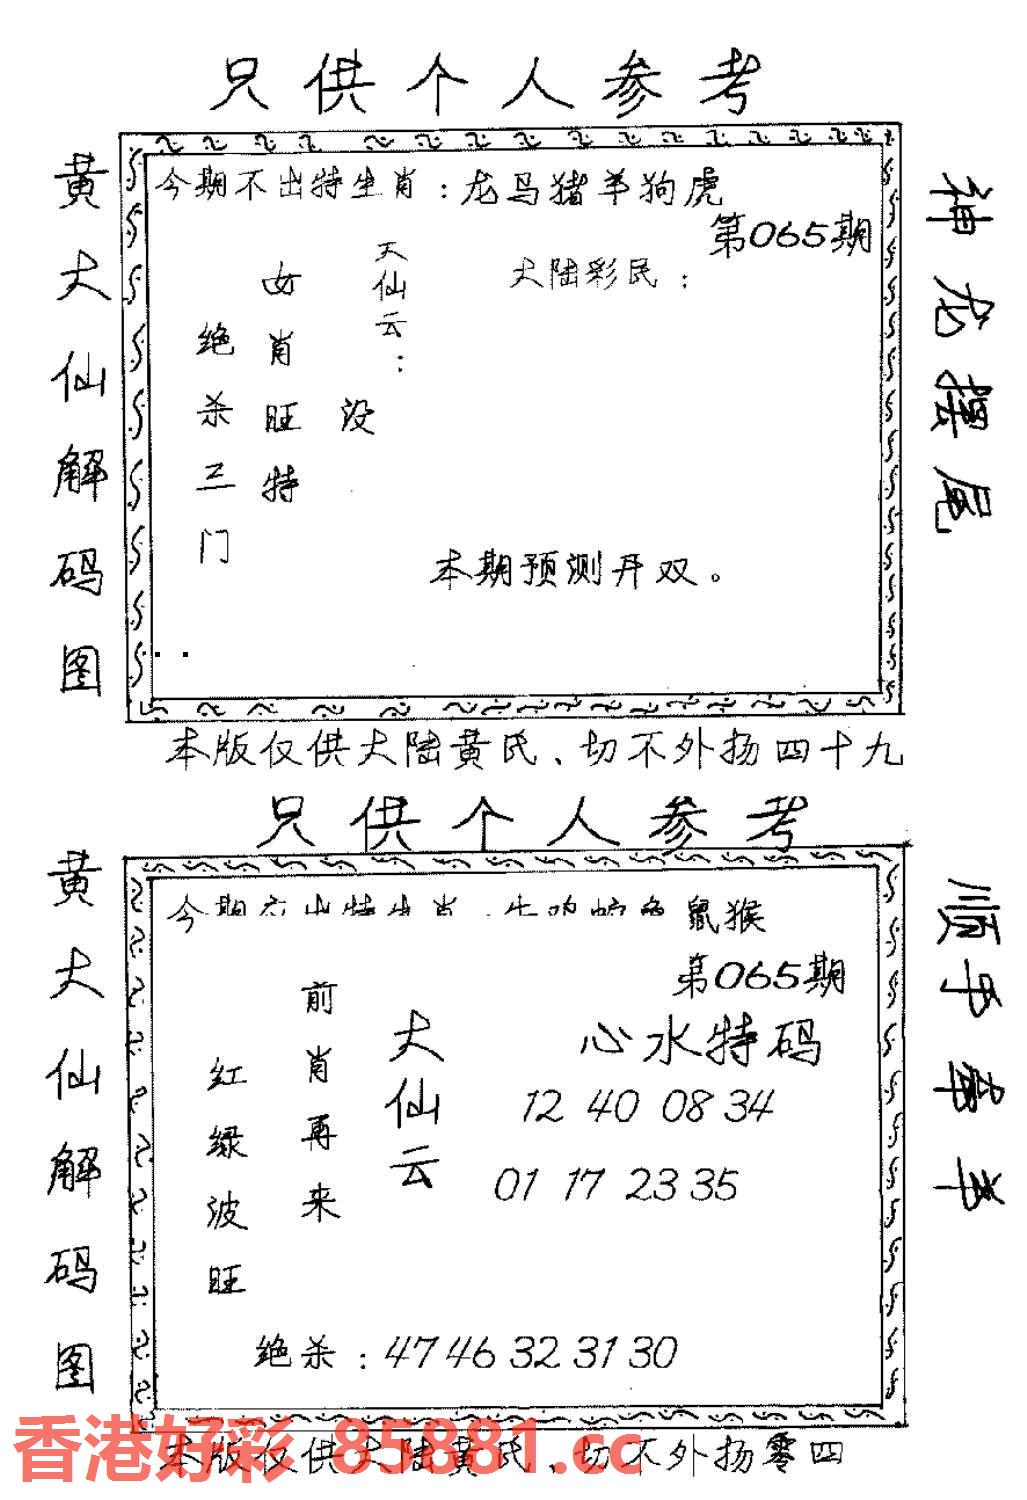 只供个人参考
黄大仙解码图
今期不出特生肖：龙马猪羊狗虎
第065期
神龙摆尾
大陆彩民：
天仙云：
没
女肖旺特
绝杀三门
本期预测开双。
本版仅供大陆黄氏、切不外扬四十九
只供个人参考
黄大仙解码图
鼠猴
第065期
心水特码
12 40 08 34
01 17 23 35
大仙云
前肖再来
红绿波旺
绝杀：47 46 32 31 30
本版仅供大陆黄氏、切不外扬零四
香港好彩 85881.cc